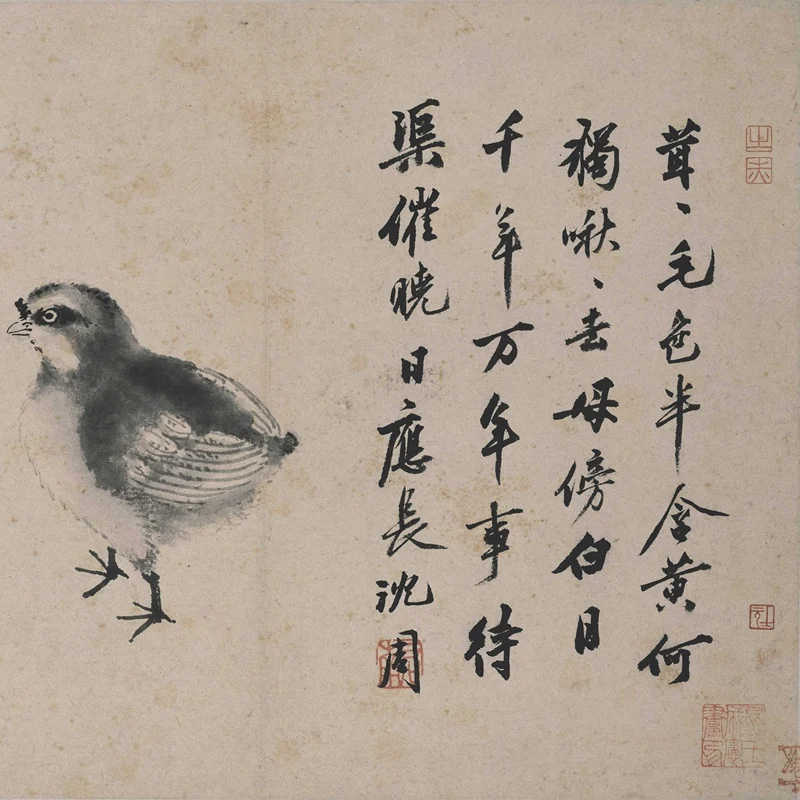 茸、毛色半含黃何
獨啾、去母傍白日
千年万年事待
渠催曉日應長沈周